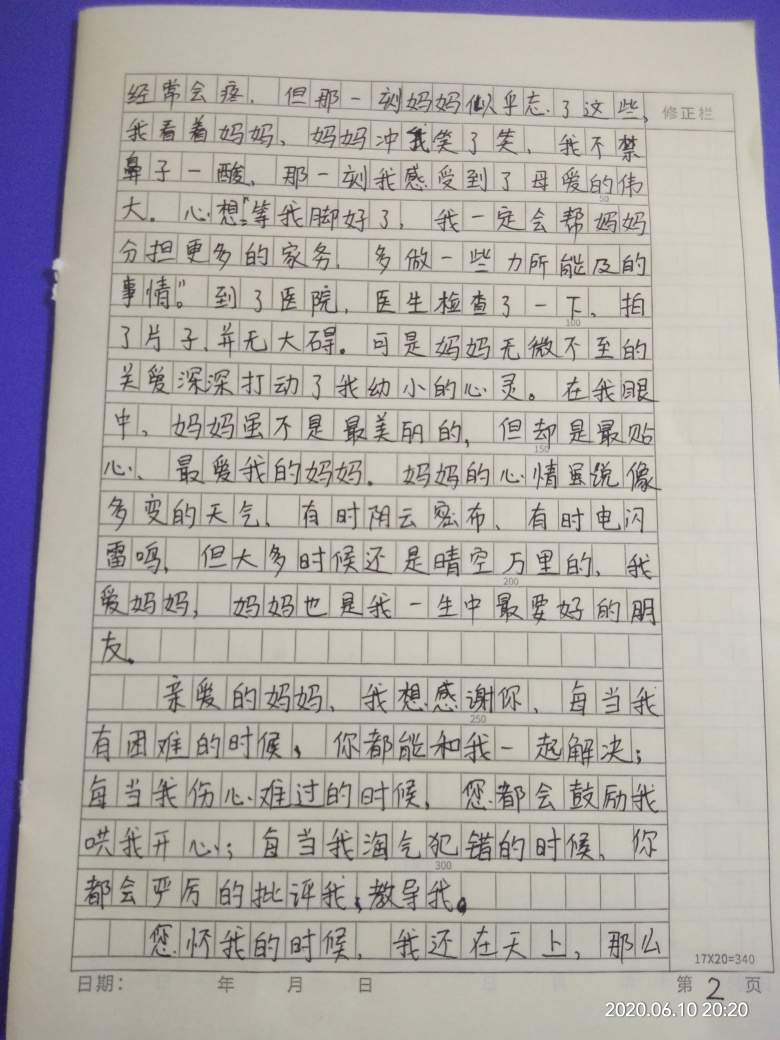 经常会疼，但那一刻妈妈似乎忘了这些，
修正栏
我看着妈妈，妈妈冲我笑了笑，我不禁
鼻子一酸，那一刻我感受到了母爱的伟
50
大。心想:“等我脚好了，我一定会帮妈妈
分担更多的家务，多做一些力所能及的
事情。”到了医院，医生检查了一下，拍
100
了片子，并无大碍。可是妈妈无微不至的
关爱深深打动了我幼小的心灵。在我眼
中，妈妈虽不是最美丽的，但却是最贴
150
心、最爱我的妈妈。妈妈的心情虽说像
多变的天气，有时阴云密布，有时电闪
雷鸣，但大多时候还是晴空万里的，我
200
爱妈妈，妈妈也是我一生中最要好的朋
友。
亲爱的妈妈，我想感谢你，每当我
250
有困难的时候，你都能和我一起解决；
每当我伤心难过的时候，您都会鼓励我
哄我开心；每当我淘气犯错的时候，你
300
都会严厉的批评我，教导我。
您怀我的时候，我还在天上，那么
17X20=340
日期： 年 月 日 第 2 页
2020.06.10 20:20